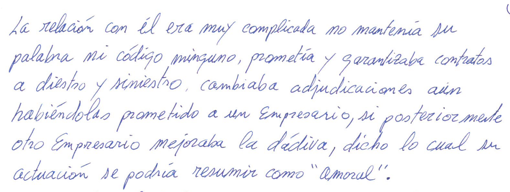 La relación con él era muy complicada no mantenía su
palabra ni código ninguno, prometía y garantizaba contratos
a diestro y siniestro, cambiaba adjudicaciones aún
habiéndolas prometido a un Empresario, si posteriormente
otro Empresario mejoraba la dádiva, dicho lo cual su
actuación se podría resumir como "amoral".